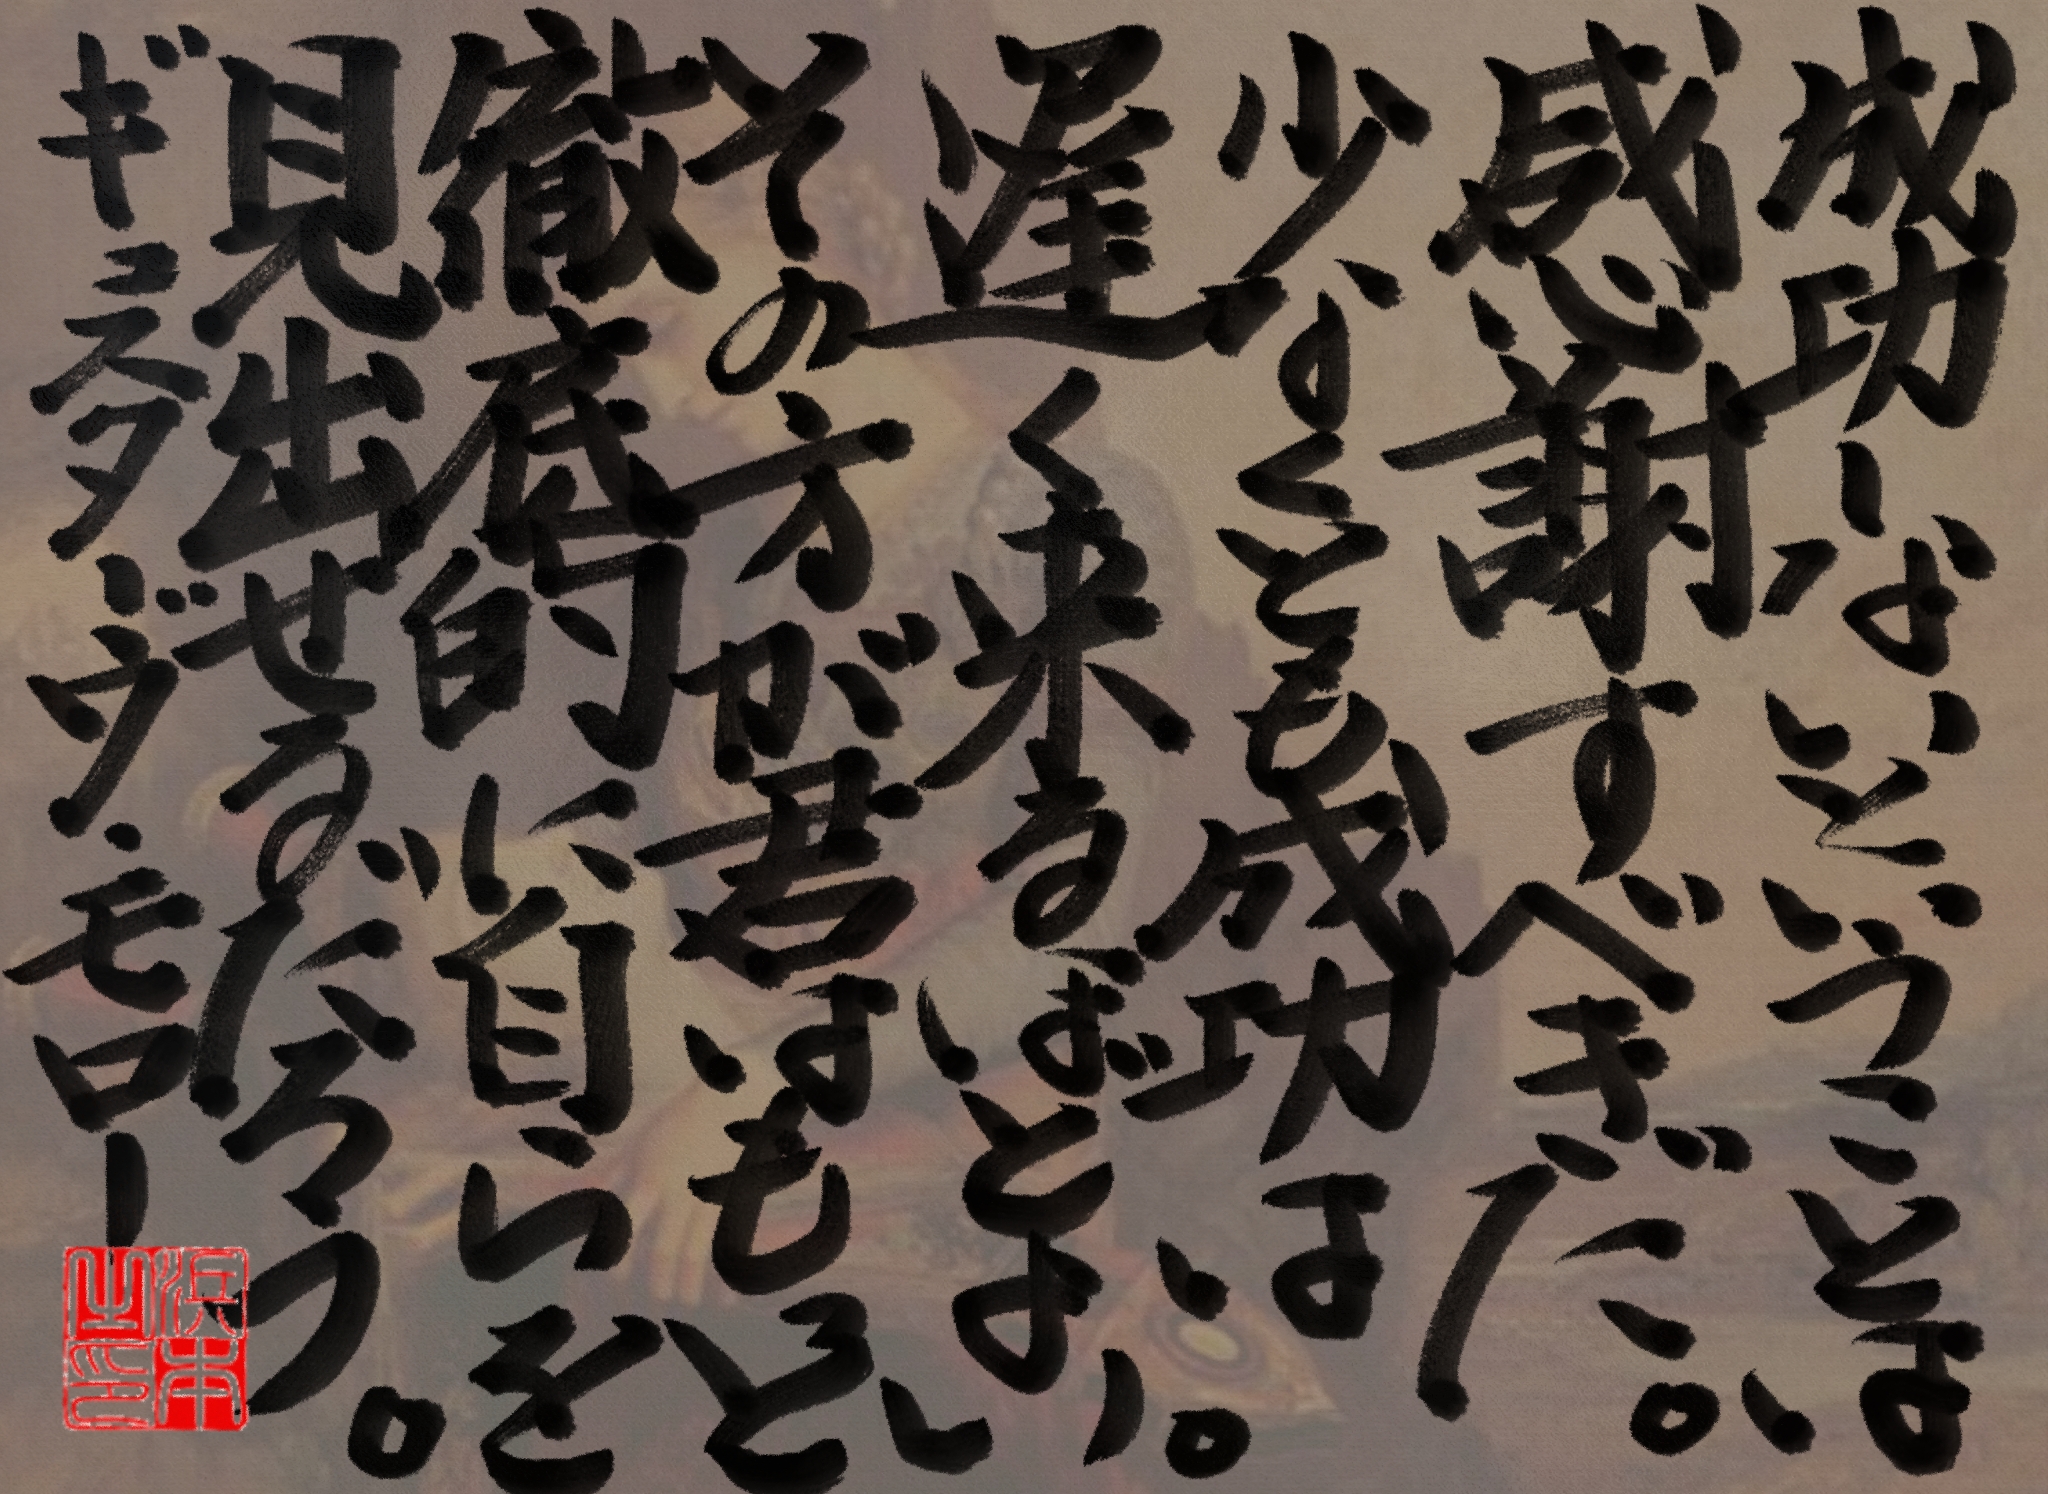 成功しないということは
感謝すべきだ。
少なくとも成功は
遅く来るほどよい。
その方が君はもっと
徹底的に自らを
見出せるだろう。
ギュスターヴ・モロー
浜本之印